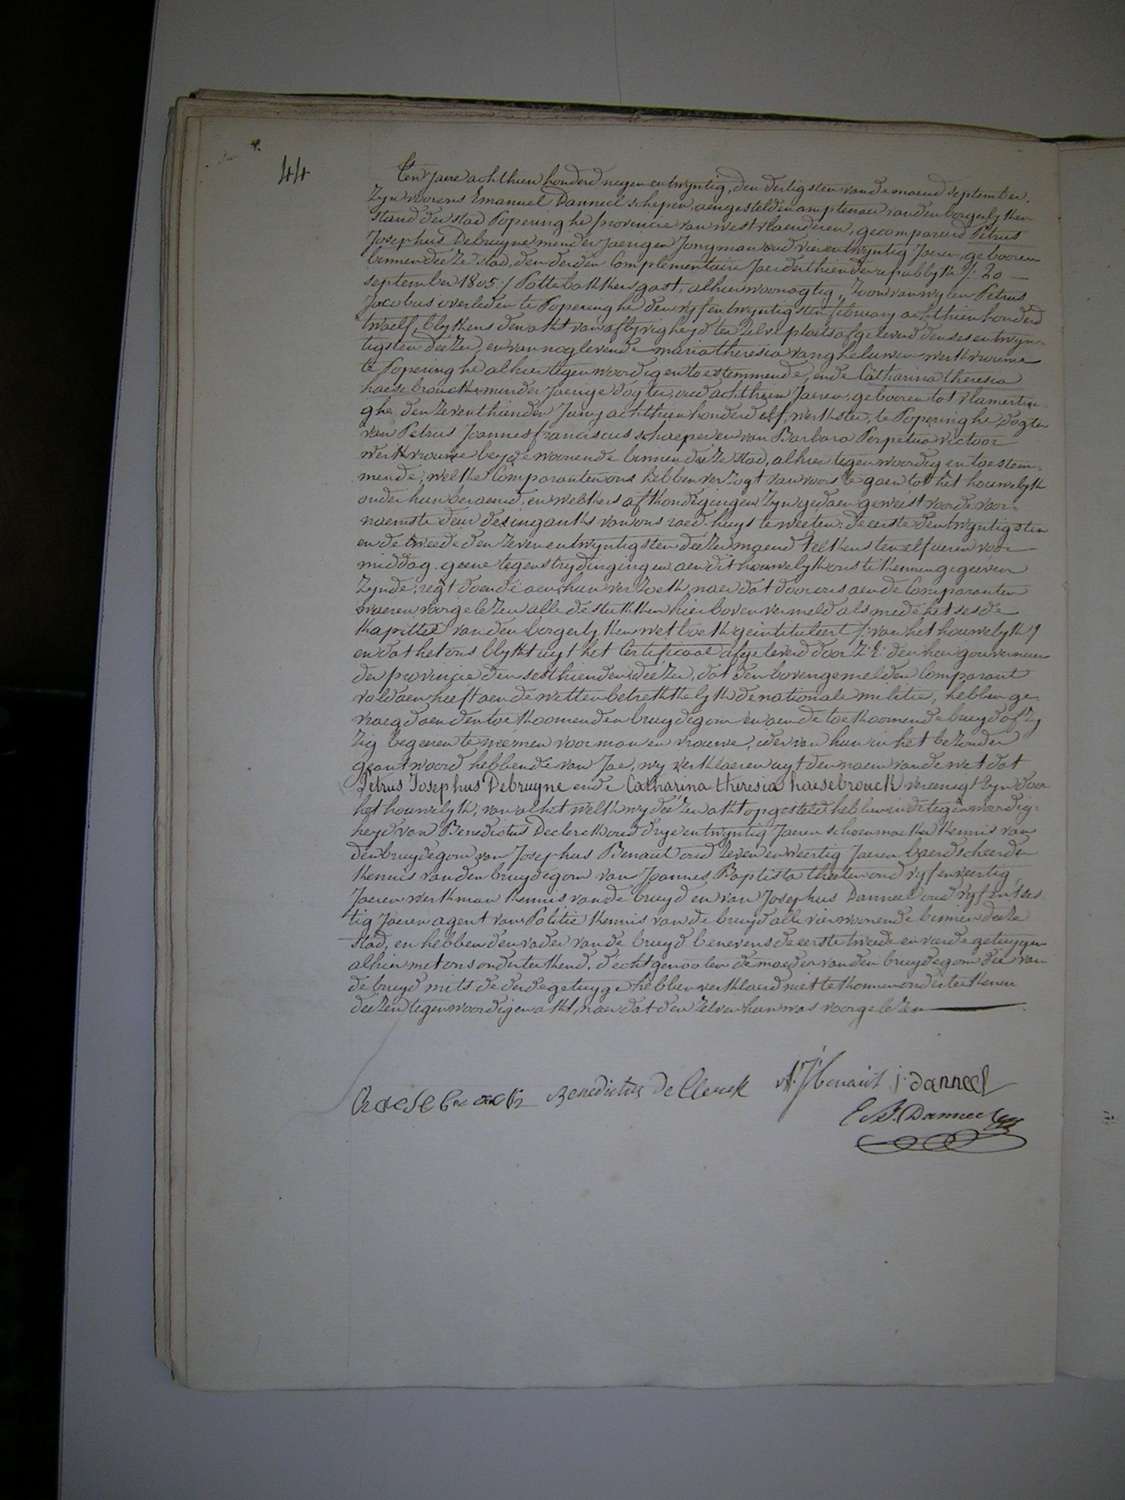 44
Ten jaere achthien honderd negen en twyntig, den dertigsten van de maend september.
Zyn voor ons Emanuel Danneel schepen, aengesteld en amptenaer van den borgerlyken
stand der stad Poperinghe provincie van westvlaenderen, gecompareerd Petrus
Josephus Debruyne minderjaerigen Jongman oud vier en twyntig Jaeren, gebooren
binnen deeze stad, den derden Complementaire Jaer derthien der republyk /: 20
september 1805 :/ Pottebakkers gast, alhier woonagtig, Zoon van wylen Petrus
Jacobus overleden te Poperinghe den vyf en twyntigsten february achthien honderd
twaelf, blykens den akt van aflyvigheyd ten zelve plaets afgeleverd den ses en twyn-
tigsten deezer, en van nog levende maria theresia vangheluwe werkvrouwe
te Poperinghe alhier tegenwoordig en toestemmende, ende Catharina theresia
haesebrouck minderjaerige dogter, oud achthien Jaeren, gebooren tot vlamertin-
ghe, den zeventhienden Juny achthien honderd elf, werkster, te Poperinghe dogter
van Petrus Joannes franciscus schaeper en van Barbara Perpetua victoor
werkvrouwe beyde woonende binnen deeze stad, alhier tegenwoordig en toestem-
mende; welke Comparanten ons hebben verzogt van voors te gaen tot het houwelyk
onder hun beraemd, en welkers afkondigingen zyn gedaen geweest voor de voor-
naemste deur des ingangs van ons raedhuys te weeten: de eerste den twyntigsten
en de tweede den zeven en twyntigsten deezer maend telkens ten elf ueren voor
middag. geene tegenstrydigingen aen dit houwelyk ons te kennen gegeeven
zynde; regt doende aen hun verzoek, naer dat door ons aen de Comparanten
waeren voorgelezen alle de stukken hier boven vermeld als mede het sesde
kapittel van den borgerlyken wetboek geintituleert /: van het houwelyk :/
en dat het ons blykt uyt het Certificaat afgeleverd door Z:E: den heer gouverneur
der provincie den sesthienden deezer, dat den bovengemelden Comparant
voldaen heeft aen de wetten betrekkelyk de nationale militie, hebben ge-
vraegd aen den toekoomenden bruydegom en aen de toekoomende bruyd of zy
zig begeeren te neemen voor man en vrouwe, ider van hun in het bezonder
geantwoord hebbende van Jae, wy verklaeren uyt den naem van de wet dat
Petrus Josephus Debruyne ende Catharina theresia haesebrouck vereenigt zyn door
het houwelyk, van al het welk wy deezen akt opgesteld hebben in de tegenwoordig-
heyd van Benedictus Declerck oud dry en twyntig Jaeren schoenmaeker kennis van
den bruydegom van Josephus Benaut oud zeven en veertig Jaeren baerdscheerder
kennis van den bruydegom van Joannes Baptista theeten oud vyf en veertig
Jaeren werkman kennis van de bruyd en van Josephus Danneel oud vyf en ses-
tig Jaeren agent van Politie kennis van de bruyd alle vier woonende binnen deeze
stad, en hebben den vader van de bruyd benevens de eerste tweede en vierde getuygen
alhier met ons onderteekend, d'echtgenooten de moeder van den bruydegom die van
de bruyd mits de derde getuyge hebben verklaerd niet te konnen onderteekenen
deezen tegenwoordigen akt, naer dat den zelven hun was voorgelezen
haesebrouck Benedictus de Clerck A:J: benaut j: danneel
E. J. Danneel